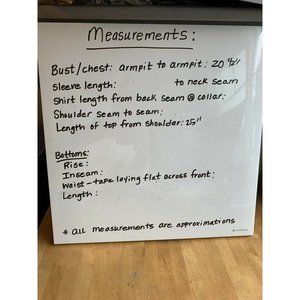 Measurements:
Bust/chest: armpit to armpit: 20 1/2"
Sleeve length: to neck seam
Shirt length from back seam @ collar:
Shoulder seam to seam:
Length of top from shoulder: 25"
Bottoms:
Rise:
Inseam:
Waist - tape laying flat across front:
Length:
* all measurements are approximations